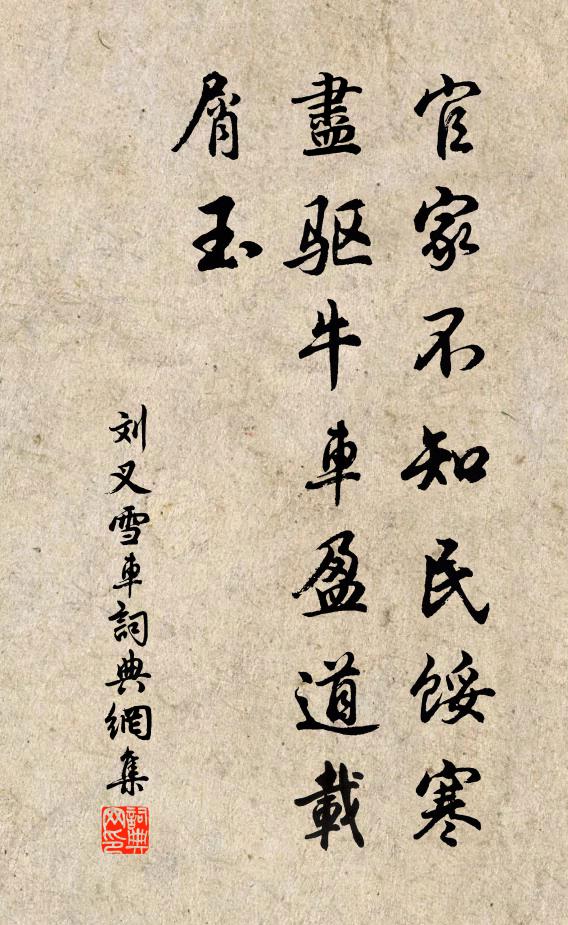 官家不知民餒寒
盡驱牛車盈道載
屑玉
刘叉雪車詞典網集
詞典
网印